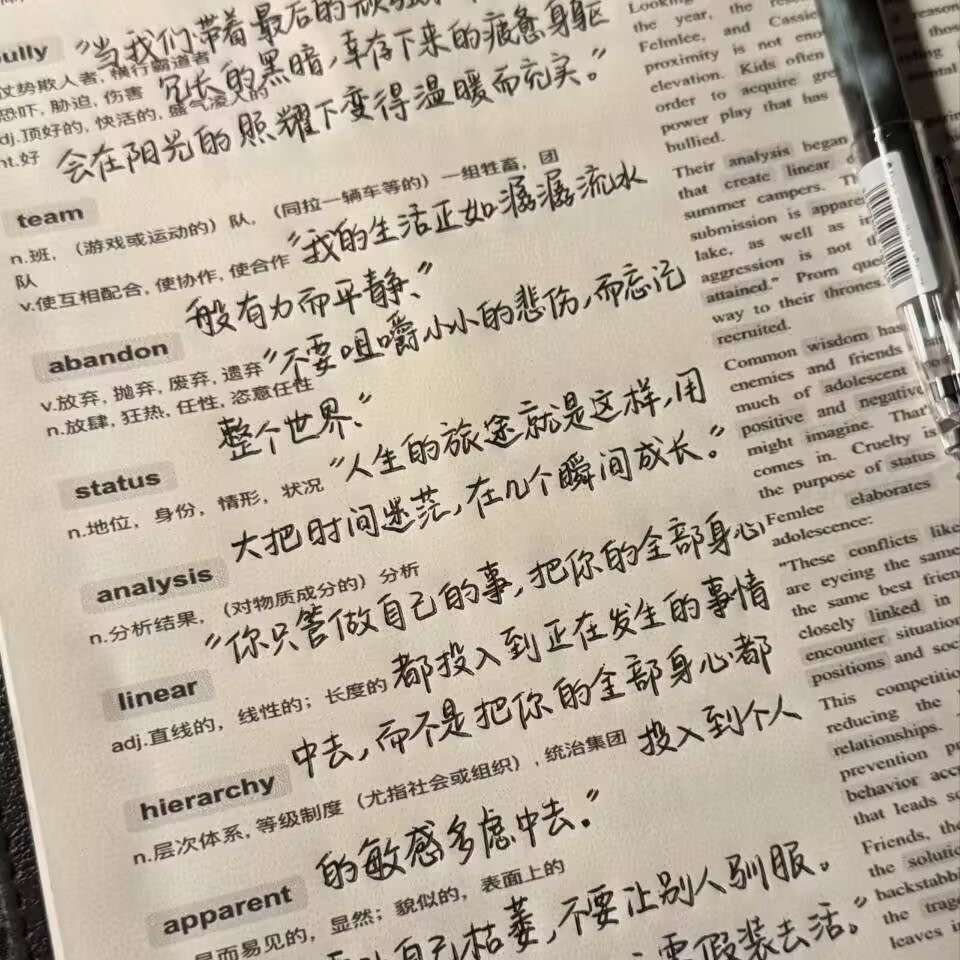 "当我们带着最后的顽强,
ully
仗势欺人者, 横行霸道者
冗长的黑暗,幸存下来的疲惫身躯
恐吓, 胁迫, 伤害
adj.顶好的, 快活的, 盛气凌人的
nt.好
会在阳光的照耀下变得温暖而充实。"
team
n.班, (游戏或运动的) 队, (同拉一辆车等的) 一组牲畜, 团
队
v.使互相配合, 使协作, 使合作
"我的生活正如潺潺流水
般有力而平静、"
abandon
v.放弃, 抛弃, 废弃, 遗弃
n.放肆, 狂热, 任性, 恣意任性
"不要咀嚼小小的悲伤,而忘记
整个世界、"
status
n.地位, 身份, 情形, 状况
"人生的旅途就是这样,用
大把时间迷茫,在几个瞬间成长。"
analysis
n.分析结果, (对物质成分的) 分析
"你只管做自己的事,把你的全部身心
linear
adj.直线的, 线性的; 长度的
都投入到正在发生的事情
中去,而不是把你的全部身心都
hierarchy
n.层次体系, 等级制度 (尤指社会或组织) , 统治集团
投入到个人
的敏感多虑中去。"
apparent
显而易见的, 显然; 貌似的, 表面上的
自己枯萎,不要让别人驯服。
需假装去活。"
Looking
the year, the
Felmlee, and Cassie
proximity is not eno
elevation. Kids often
order to acquire gre
power play that has
bullied.
Their analysis began
that create linear
summer campers. Th
submission is appare
lake, as well as in
aggression is not th
attained." Prom que
way to their thrones.
recruited.
Common wisdom has
enemies and friends
much of adolescent
positive and negative
might imagine. That'
comes in. Cruelty is
the purpose of status
Femlee elaborates
adolescence:
"These conflicts like
are eyeing the same
the same best frien
closely linked in
encounter situation
positions and soc
This competitio
reducing the
relationships.
prevention pr
behavior acc
that leads so
Friends, the
the solutio
backstabbi
the trage
leaves in
reason
those
ntal